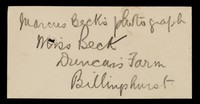 Marcus Beck's photograph
Miss Beck
Duncans Farm
Billinghurst